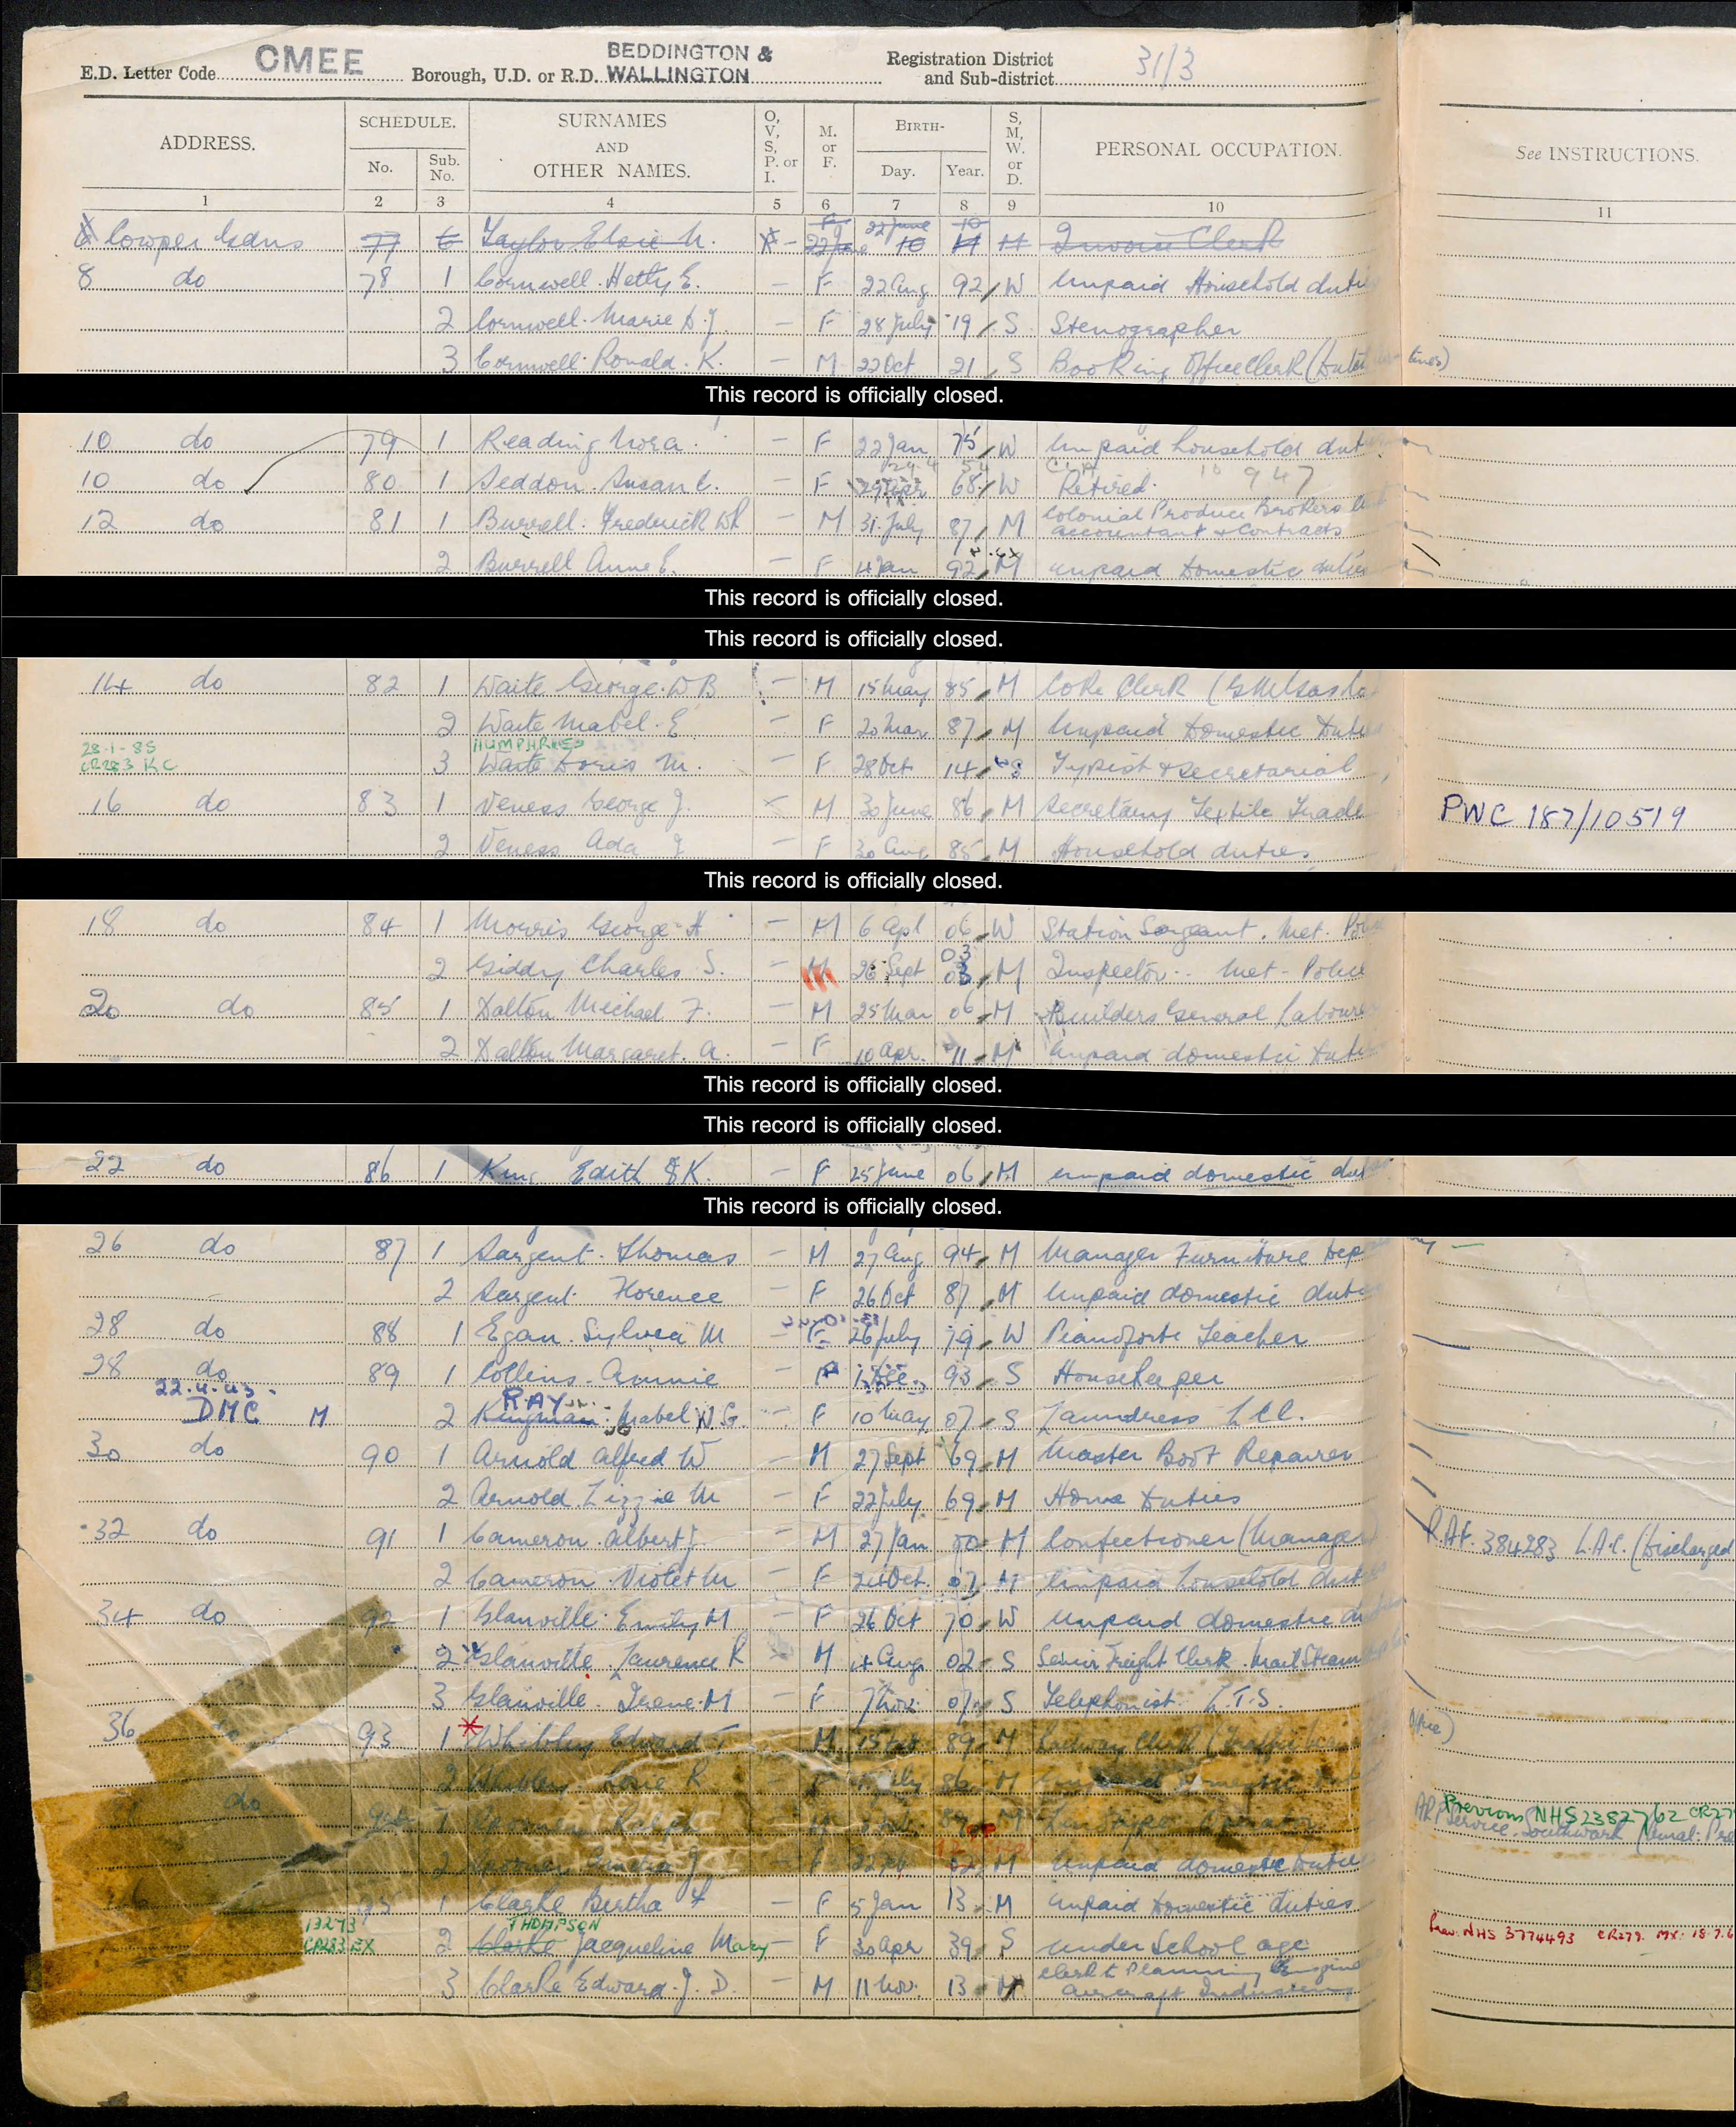 E.D. Letter Code CMEE Borough, U.D. or R.D. BEDDINGTON & WALLINGTON Registration District and Sub-district 31/3
ADDRESS. SCHEDULE. No. Sub. No. SURNAMES AND OTHER NAMES. O, V, S, P. or I. M. or F. BIRTH- Day. Year. S, M, W. or D. PERSONAL OCCUPATION. See INSTRUCTIONS.
1 2 3 4 5 6 7 8 9 10 11
Cowper Gdns 77 6 Taylor Elsie M. 22 June 10 Invoice Clerk
8 do 78 1 Cornwell Hetty E. – F 22 Aug 92 W Unpaid Household duti
2 Cornwell Marie D. J. – F 28 July 19 S Stenographer
3 Cornwell Ronald K. – M 22 Oct 21 S Booking Office Clerk lines)
This record is officially closed.
10 do 79 1 Reading Nora – F 22 Jan 75 W Unpaid household dut
10 do 80 1 Seddon Susan E. – F 29 Apr 68 W Retired 947
12 do 81 1 Burrell Frederick – M 31 July 87 M Colonial Produce Brokers accountant & Contracts
2 Burrell Anne E. – F 4 Jan 92 M unpaid Domestic duties
This record is officially closed.
This record is officially closed.
14 do 82 1 Waite George W B – M 15 May 85 M Coke Clerk
2 Waite Mabel E – F 20 Mar 87 M Unpaid Domestic Duti
28-1-85 CR283 KC HUMPHRIES
3 Waite Doris M. – F 28 Oct 14 S Typist & Secretarial
16 do 83 1 Veness George J. M 30 June 86 M Secretary Textile Trade PWC 187/10519
2 Veness Ada J – F 30 Aug 85 M Household duties
This record is officially closed.
18 do 84 1 Morris George H – M 6 Apl 06 W Station Sergeant. Met. Poli
2 Giddy Charles S. – M 26 Sept 03 03 M Inspector Met-Police
20 do 85 1 Dalton Michael F. – M 25 Mar 06 M Builders General Labourer
2 Dalton Margaret A. – F 10 Apr. 11 M Unpaid domestic Duti
This record is officially closed.
This record is officially closed.
22 do 86 1 King Edith K. – F 25 June 06 M unpaid domestic dut
This record is officially closed.
26 do 87 1 Sargent Thomas – M 27 Aug 94 M Manager Furniture Dep
2 Sargent Florence – F 26 Oct 87 M Unpaid domestic duti
28 do 88 1 Egan Sylvia M – F 26 July 79 W Pianoforte Teacher
28 do 89 1 Collins Annie – F 1 Dec 93 S Housekeeper
22.4.43 DMC M RAY
2 Kingman Mabel W. G. F 10 May 07 S Laundress L.C.C.
30 do 90 1 Arnold Alfred W M 27 Sept 69 M Master Boot Repairer
2 Arnold Lizzie M – F 22 July 69 M Home Duties
32 do 91 1 Cameron Albert J. – M 27 Jan 00 M Confectioner (Manager) R.A.F. 384283 L.A.C. (Discharged
2 Cameron Violet M – F Oct. 07 M Unpaid household dut
34 do 92 1 Glanville Emily M – F 26 Oct 70 W unpaid domestic
2 Glanville Laurence R M Aug 02 S Senior Freight Clerk Mail Steam
3 Glanville Irene M – F 7 Nov 07 S Telephonist L.T.S.
36 93 1 Edward M 15 89 M Railway Clerk
2 86 M
do 1 Ralph Previous NHS 2382762 CR27
ARP Service Southwark
2 F M Unpaid domestic Dutie
95 1 Clarke Bertha – F 5 Jan 13 M unpaid Domestic duties
13273 CR283 EX THOMPSON
2 Clarke Jacqueline Mary – F 30 Apr 39 S under School age Prev. NHS 3774493 CR279. MX. 18.7.6
3 Clarke Edward J. D. – M 11 Nov. 13 M Clerk Planning Aircraft Industry